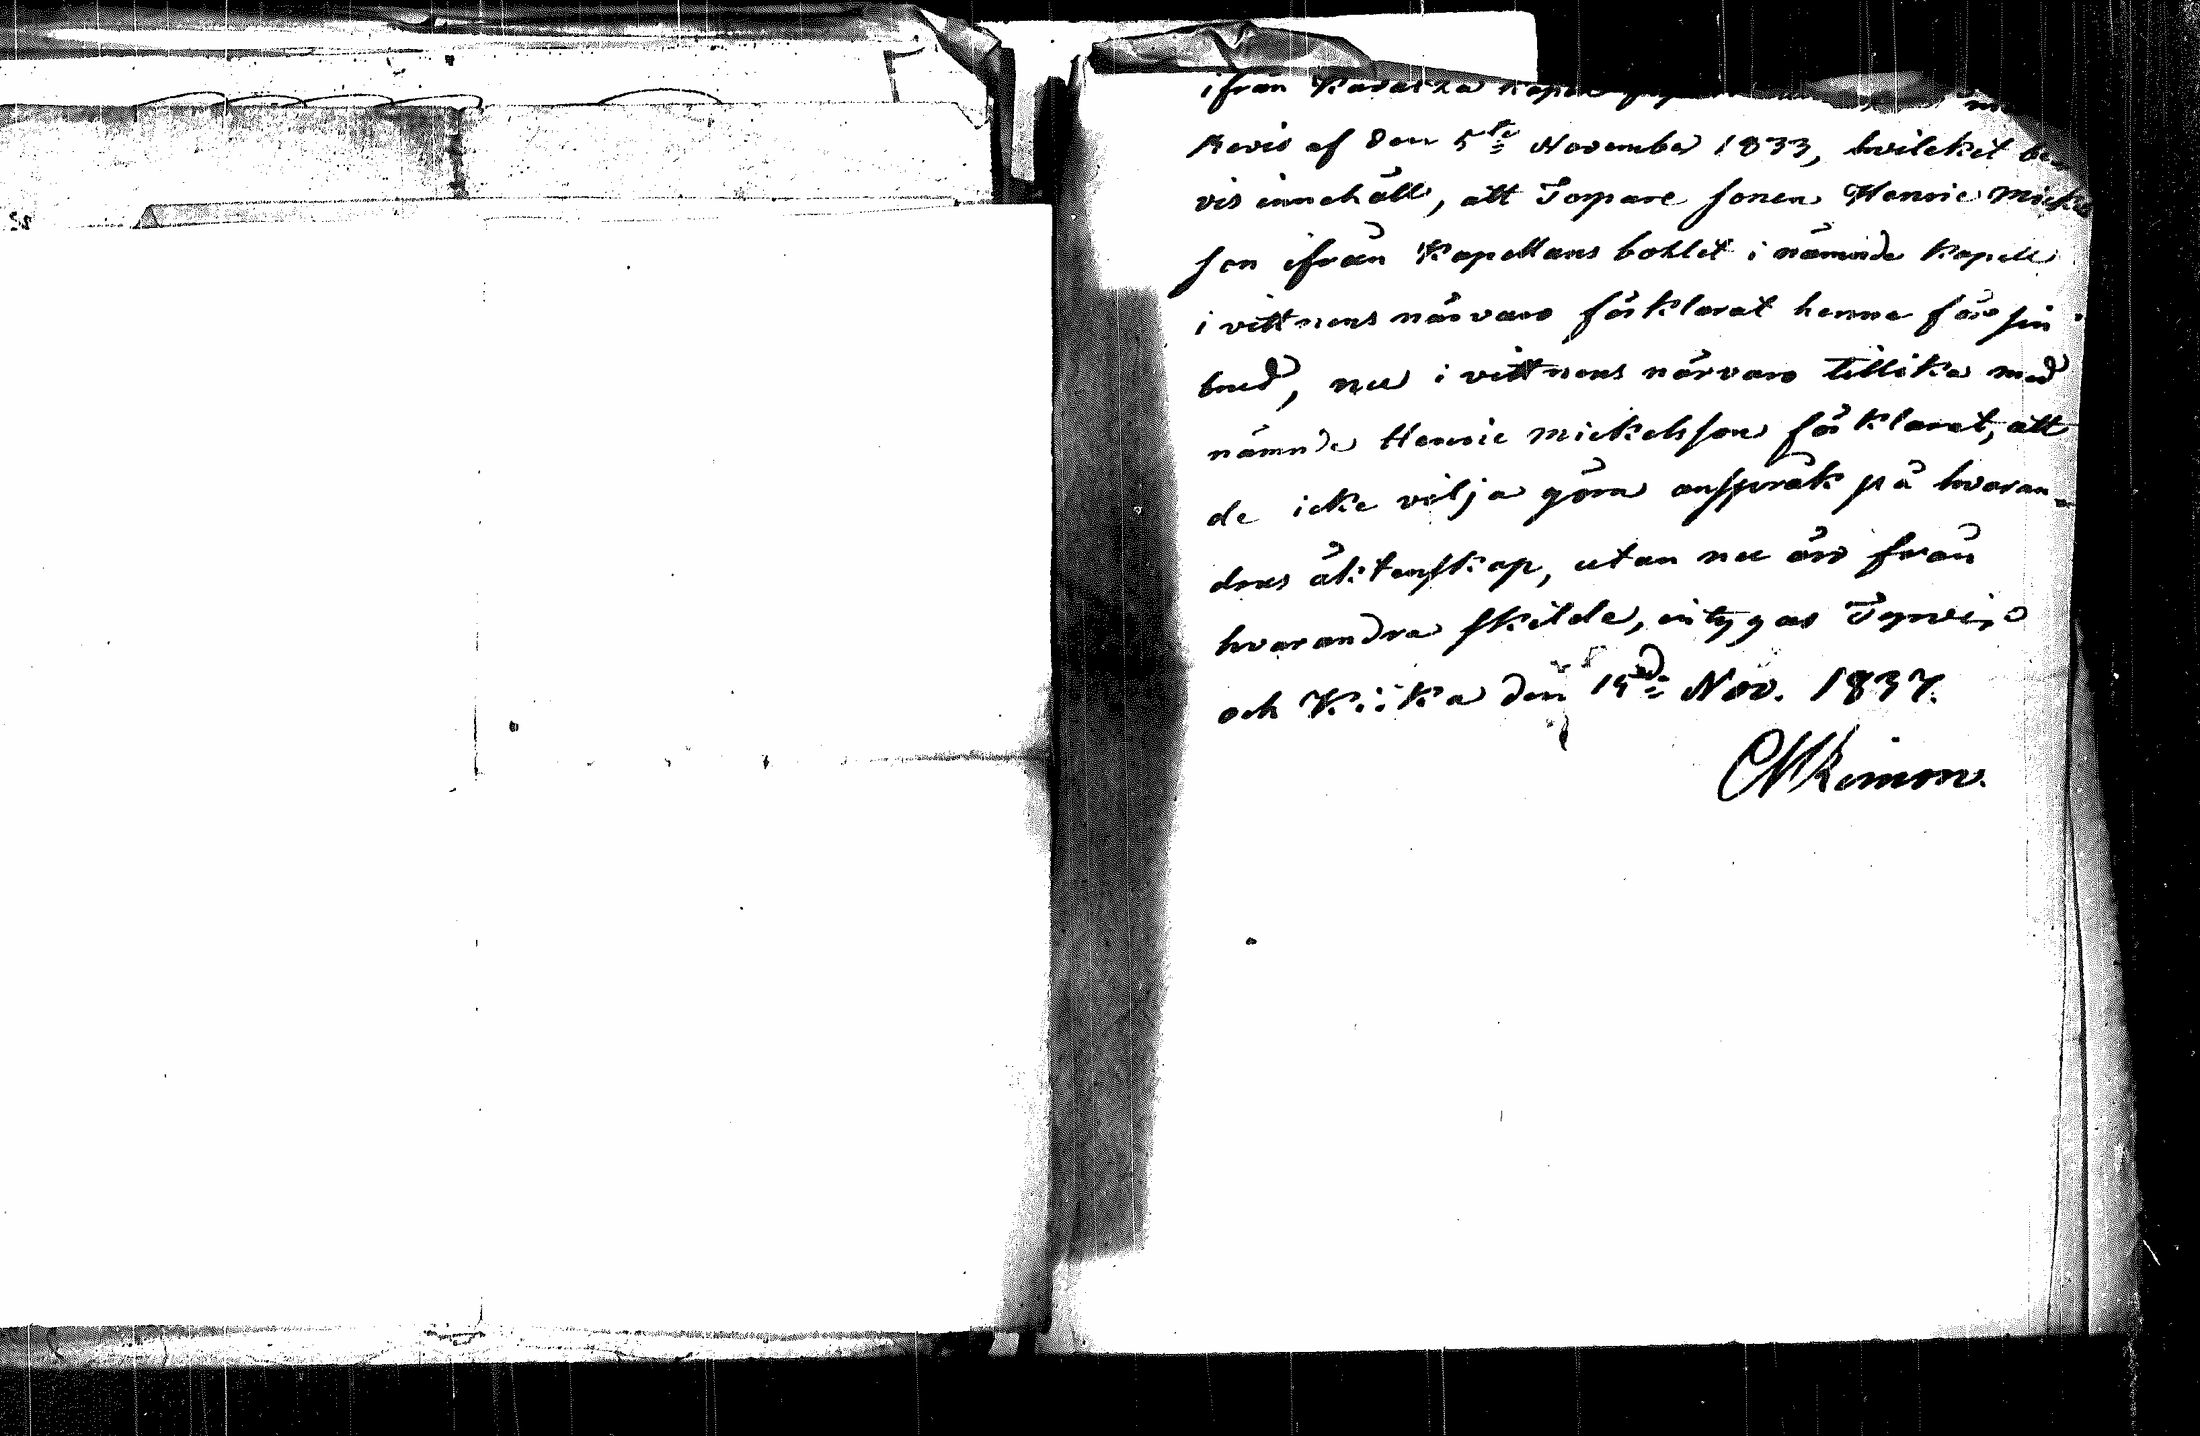 ifrån Kapell
Bevis af den 5te November 1833, hvilcket be
vis innehåll, att Torpare sonen Henric Mickels
son ifrån Kapellans bohlet i nämnde Kapell
i vittnens närvaro förklarat henne för sin
brud, nu i vittnens närvaro tillika med
nämnde Henric Mickelsson förklarat, att
de icke vilja göra anspråk på hvaran-
dras äktenskap, utan nu äro från
hvarandra skilde, intygas Tyrvis
och Kiika den 19de Nov. 1837.